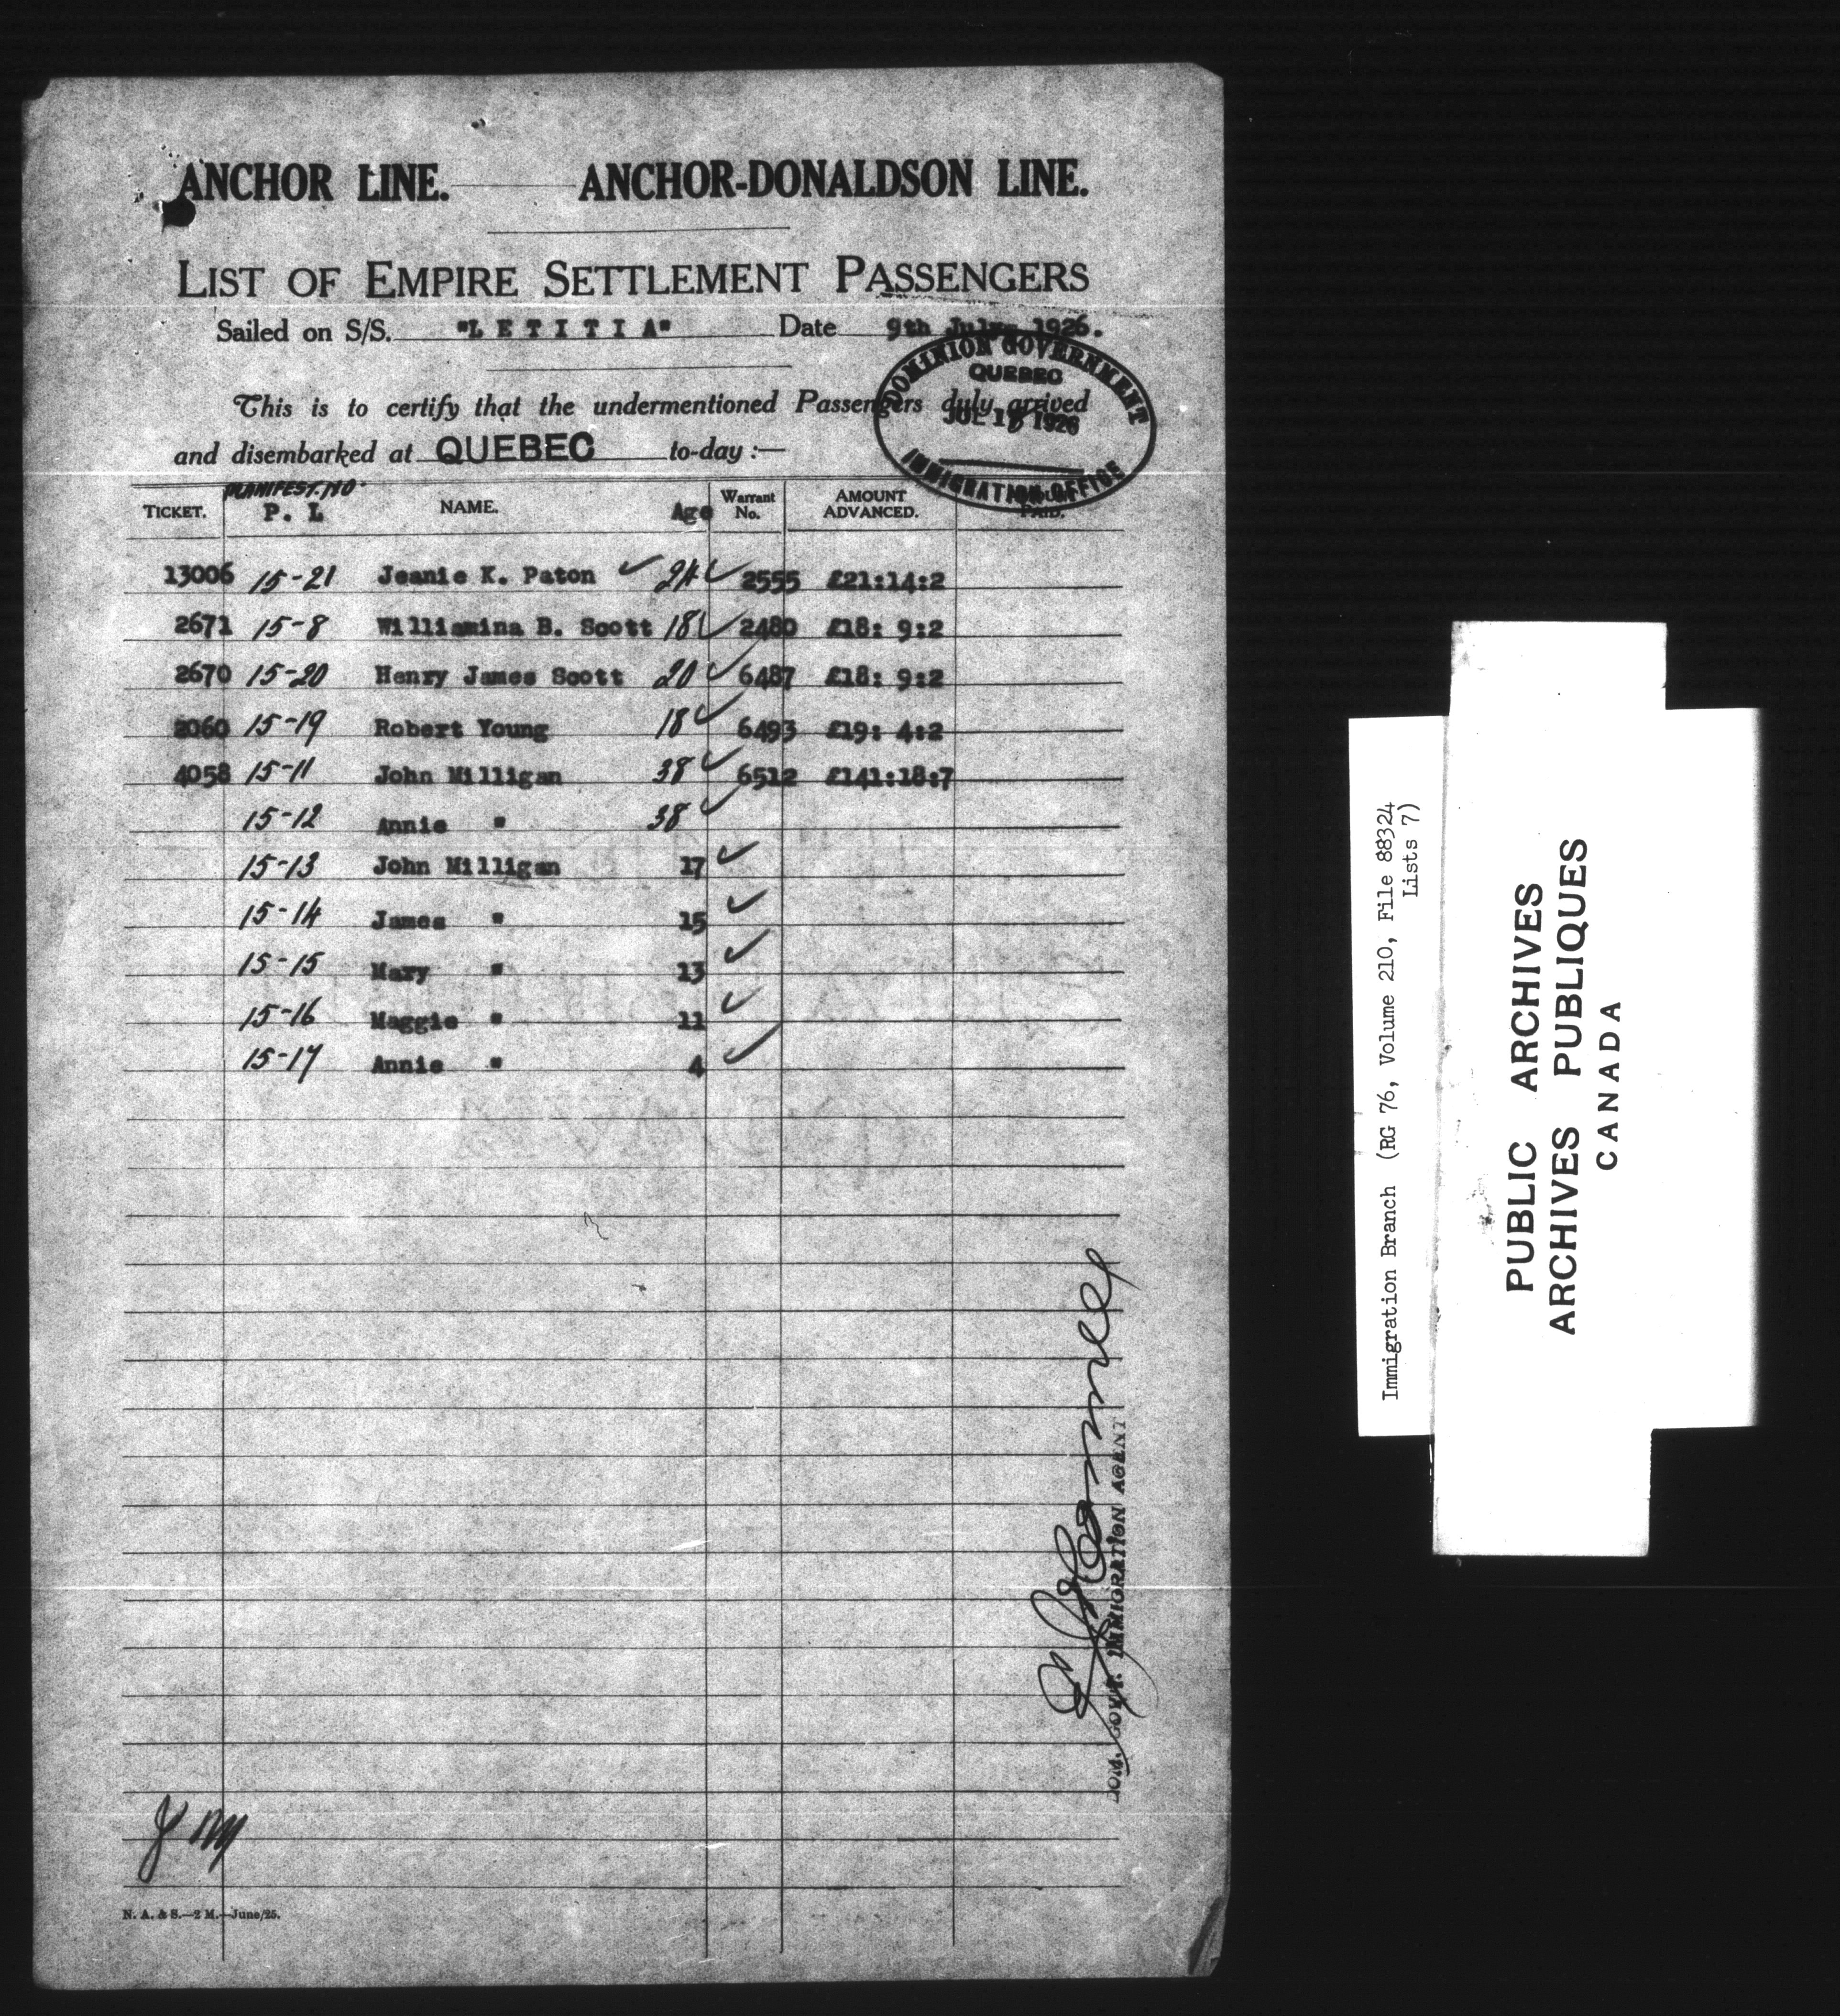 ANCHOR LINE. ANCHOR-DONALDSON LINE.
LIST OF EMPIRE SETTLEMENT PASSENGERS
Sailed on S/S. "LETITIA" Date 9th July- 1926.
DOMINION GOVERNMENT
QUEBEC
JUL 1 1926
IMMIGRATION OFFICE
This is to certify that the undermentioned Passengers duly arrived
and disembarked at QUEBEC to-day :—
TICKET. MANIFEST. NO. P. L NAME. Age Warrant No. AMOUNT ADVANCED. PAID.
13006 15-21 Jeanie K. Paton 24 2555 £21:14:2
2671 15-8 Williamina B. Scott 18 2480 £18: 9:2
2670 15-20 Henry James Scott 20 6487 £18: 9:2
2060 15-19 Robert Young 18 6493 £19: 4:2
4058 15-11 John Milligan 38 6512 £141:18:7
15-12 Annie " 38
15-13 John Milligan 17
15-14 James " 15
15-15 Mary " 13
15-16 Maggie " 11
15-17 Annie " 4
DOM. GOVT. IMMIGRATION AGENT
N. A. & S.—2 M.—June/25.
Immigration Branch (RG 76, Volume 210, File 88324
Lists 7)
PUBLIC ARCHIVES
ARCHIVES PUBLIQUES
CANADA